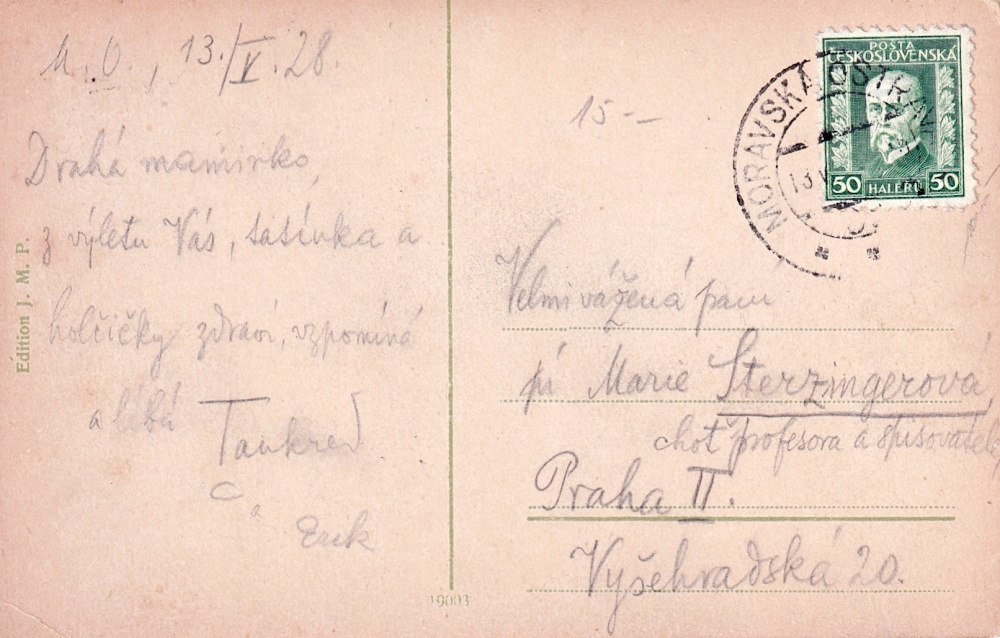 M. O., 13./V. 28.
Drahá maminko,
z výletu Vás, tatínka a
holčičky zdraví, vzpomíná
a líbá Tankred
a
Erik
Édition J. M. P.
19003
15--
POSTA
ČESKOSLOVENSKÁ
50 HALÉRŮ 50
MORAVSKÁ OSTRAVA
13 V
Velmi vážená paní
pí Marie Sterzingerová,
choť profesora a spisovatele
Praha II.
Vyšehradská 20.